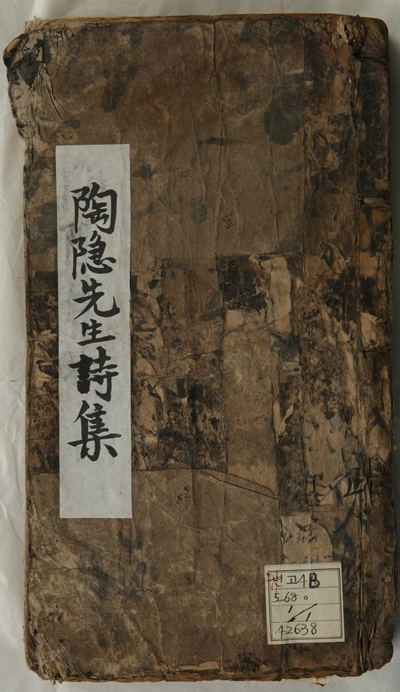 陶隐先生詩集
변고4B
568。
1/1
42638